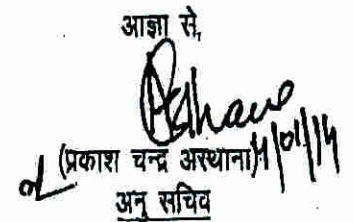 आज्ञा से,
(प्रकाश चन्द्र अस्थाना)
अनु सचिव